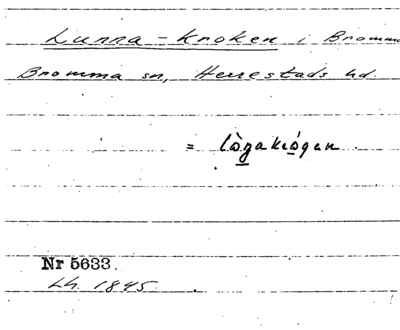 Lunna-Kroken i Bromma
Bromma sn, Herrestads hd.
= lòŋakrógen
Nr 5633.
Lh. 1845.